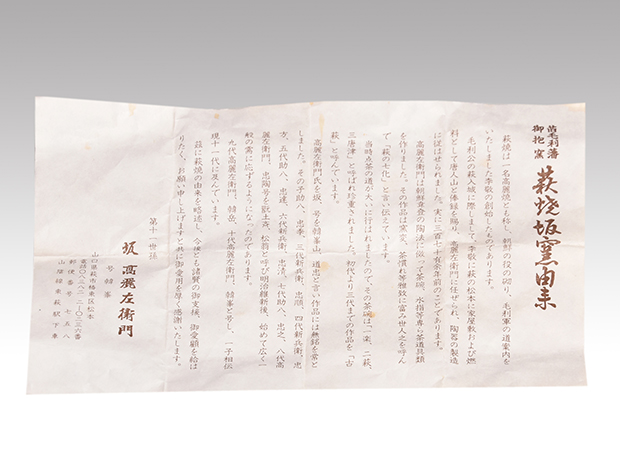 旧毛利藩
御抱窯
萩焼坂窯由来
萩焼は一名高麗焼とも称し、朝鮮の役の砌り、毛利軍の道案内を
いたしました李敬の創始したものであります。
毛利公の萩入城に際しまして李敬に萩の松本に家屋敷および燃
料として唐人山と俸禄を賜り、高麗左衛門に任ぜられ、陶器の製造
に従はせられました。実に三百七十有余年前のことであります。
高麗左衛門は朝鮮立食の陶法に倣って茶碗、水指等専ら茶道具類
を作りました。その作品は窯変、茶慣れ等雅致に富み世人之を呼ん
で「萩の七化」と言い伝えています。
当時点茶の道が大いに行はれましたのでその茶碗は一楽、二萩、
三唐津」と呼ばれ珍重されました。初代より三代までの作品を「古
萩」と呼んでいます。
高麗左衛門氏を坂、号を韓峯
道忠と言い作品には無銘を常と
しました。その子助八、忠季、三代新兵衛、忠順、四代新兵衛、忠
方、五代助八、忠達、六代新兵衛、忠清、七代助八、忠之、八代高
麗左衛門、忠陶号を翫土斎、松翁と呼び明治維新後、始めて広く一
般の需に応ずるようになったのであります。
九代高麗左衛門、韓岳、十代高麗左衛門、韓峯と号し、一子相伝
現十一代に及んでいます。
茲に萩焼の由来を略述し、今後とも諸賢の御支援、御愛顧を給は
りたく、お願い申し上げますと共に御愛用を厚く感謝いたします。
第十一世孫
号韓峯
坂高麗左衛門
山口県萩市椿東区松本
電話〇八三八二-二-〇二三六番
郵便番号七五八
山陰線東萩駅下車